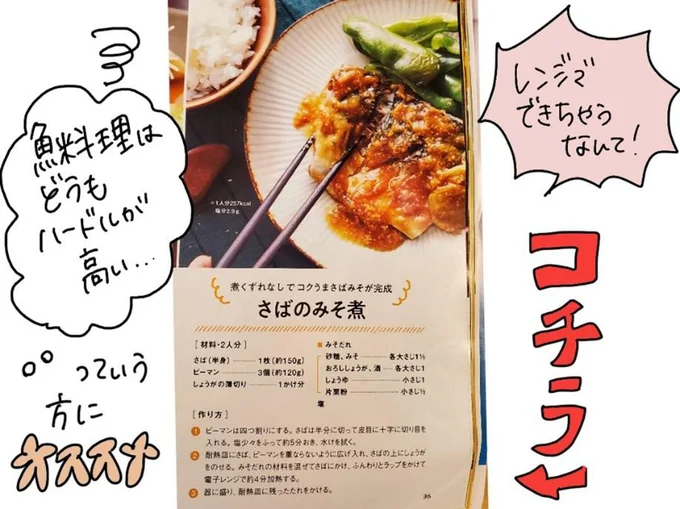 魚料理は
どうも
ハードルが
高い...
っていう
方に
オススメ
レンジで
できちゃう
なんて!
コチラ
*1人分257kcal
塩分2.9g
煮くずれなしでコクうまさばみそが完成
さばのみそ煮
[材料・2人分]
さば(半身) 1枚(約150g)
ピーマン 3個(約120g)
しょうがの薄切り 1かけ分
塩
■みそだれ
砂糖、みそ 各大さじ1½
おろししょうが、酒 各大さじ1
しょうゆ 小さじ1
片栗粉 小さじ½
[作り方]
1 ピーマンは四つ割りにする。さばは半分に切って皮目に十字に切り目を
入れる。塩少々をふって約5分おき、水けを拭く。
2 耐熱皿にさば、ピーマンを重ならないように広げ入れ、さばの上にしょうが
をのせる。みそだれの材料を混ぜてさばにかけ、ふんわりとラップをかけて
電子レンジで約4分加熱する。
3 器に盛り、耐熱皿に残ったたれをかける。
36